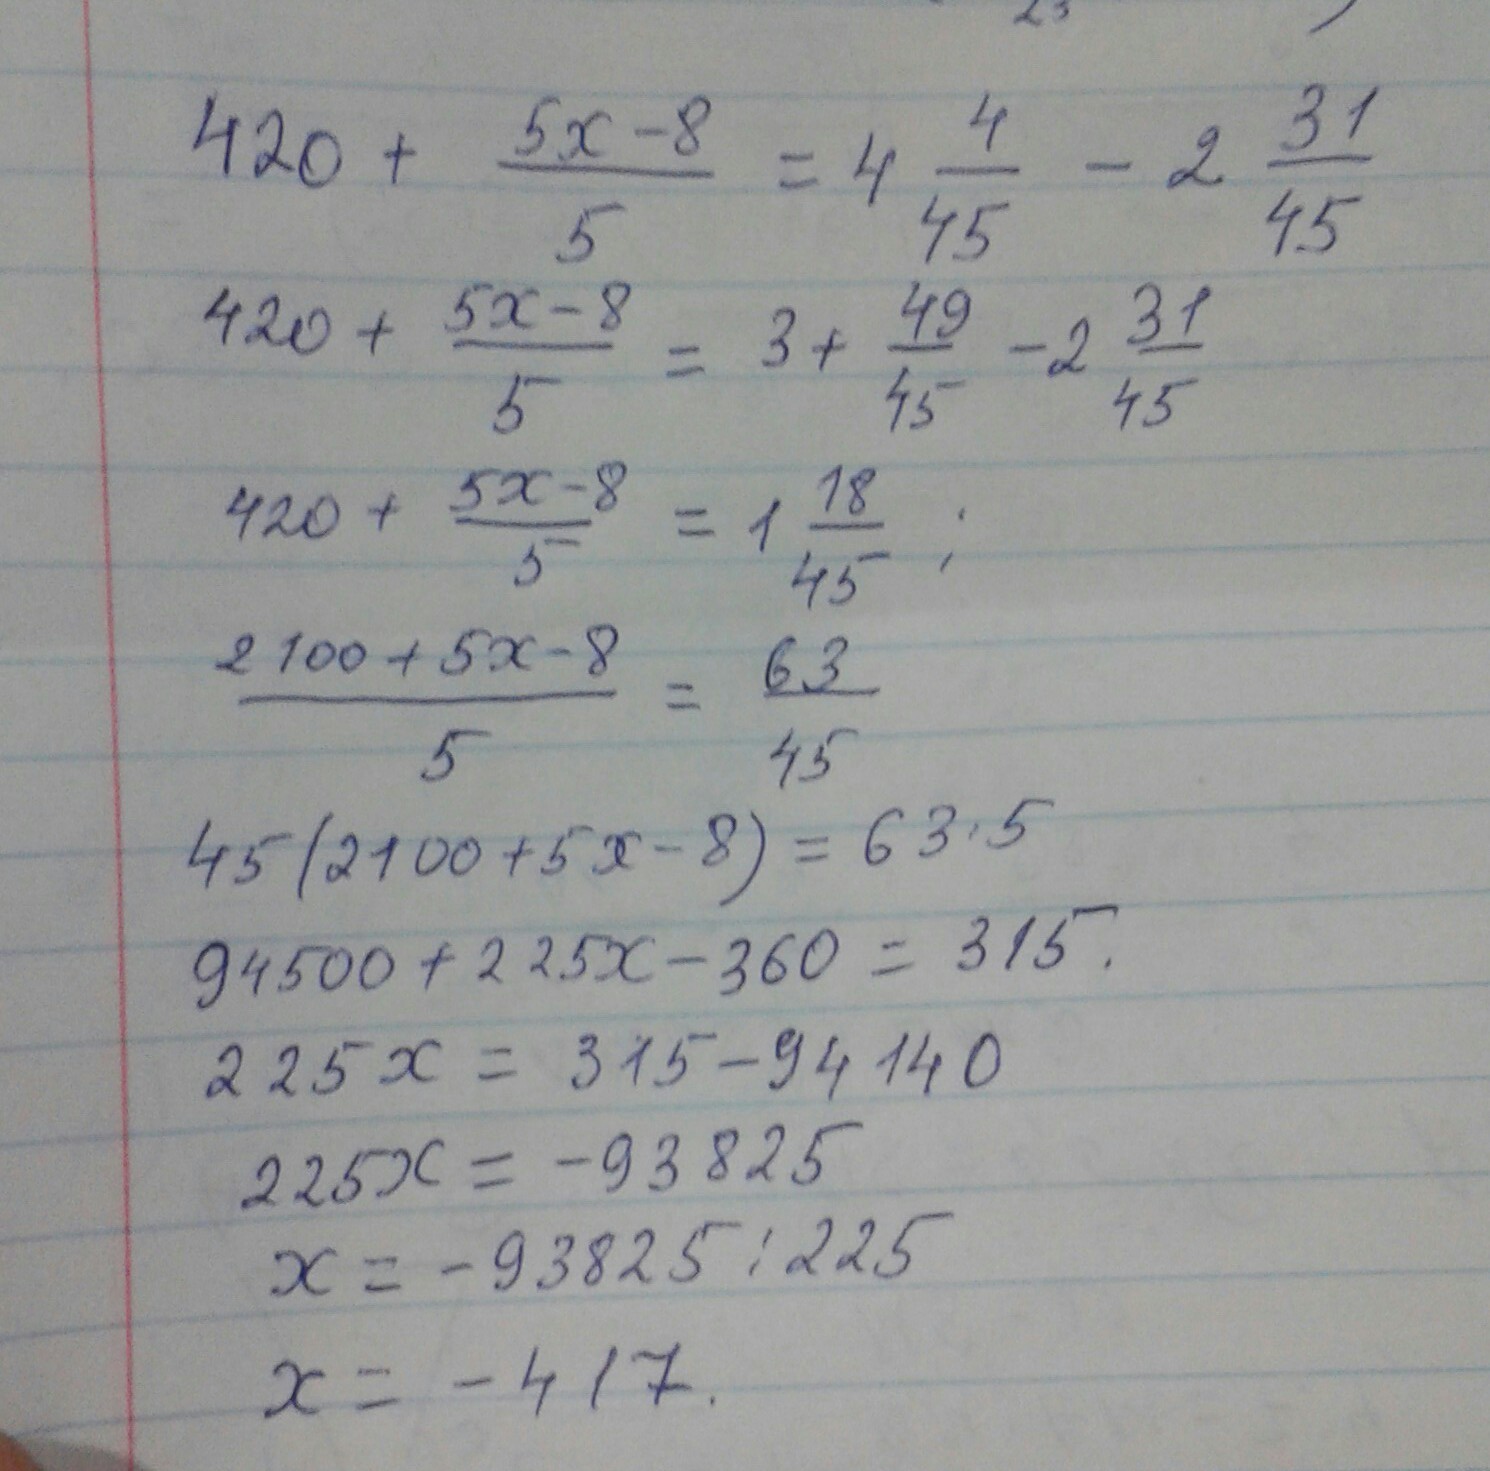 23 )
420 + (5x-8)/5 = 4 4/45 - 2 31/45
420 + (5x-8)/5 = 3 + 49/45 - 2 31/45
420 + (5x-8)/5 = 1 18/45 ;
(2100+5x-8)/5 = 63/45
45(2100+5x-8) = 63·5
94500+225x-360 = 315.
225x = 315-94140
225x = -93825
x = -93825:225
x = -417.